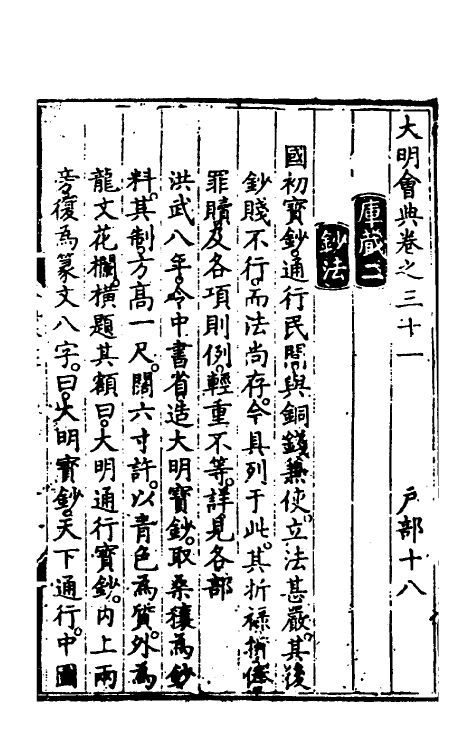 大明會典卷之三十一　户部十八
庫藏二
鈔法
國初寶鈔。通行民間。與銅錢兼使。立法甚嚴。其後
鈔賤不行。而法尚存。今具列于此。其折祿折俸
罪贖及各項則例。輕重不等。詳見各部
洪武八年。令中書省造大明寶鈔。取桑穰為鈔
料。其制方高一尺。闊六寸許。以青色為質。外為
龍文花欄。橫題其額曰。大明通行寶鈔。內上兩
旁。復為篆文八字。曰。大明寶鈔。天下通行。中圖